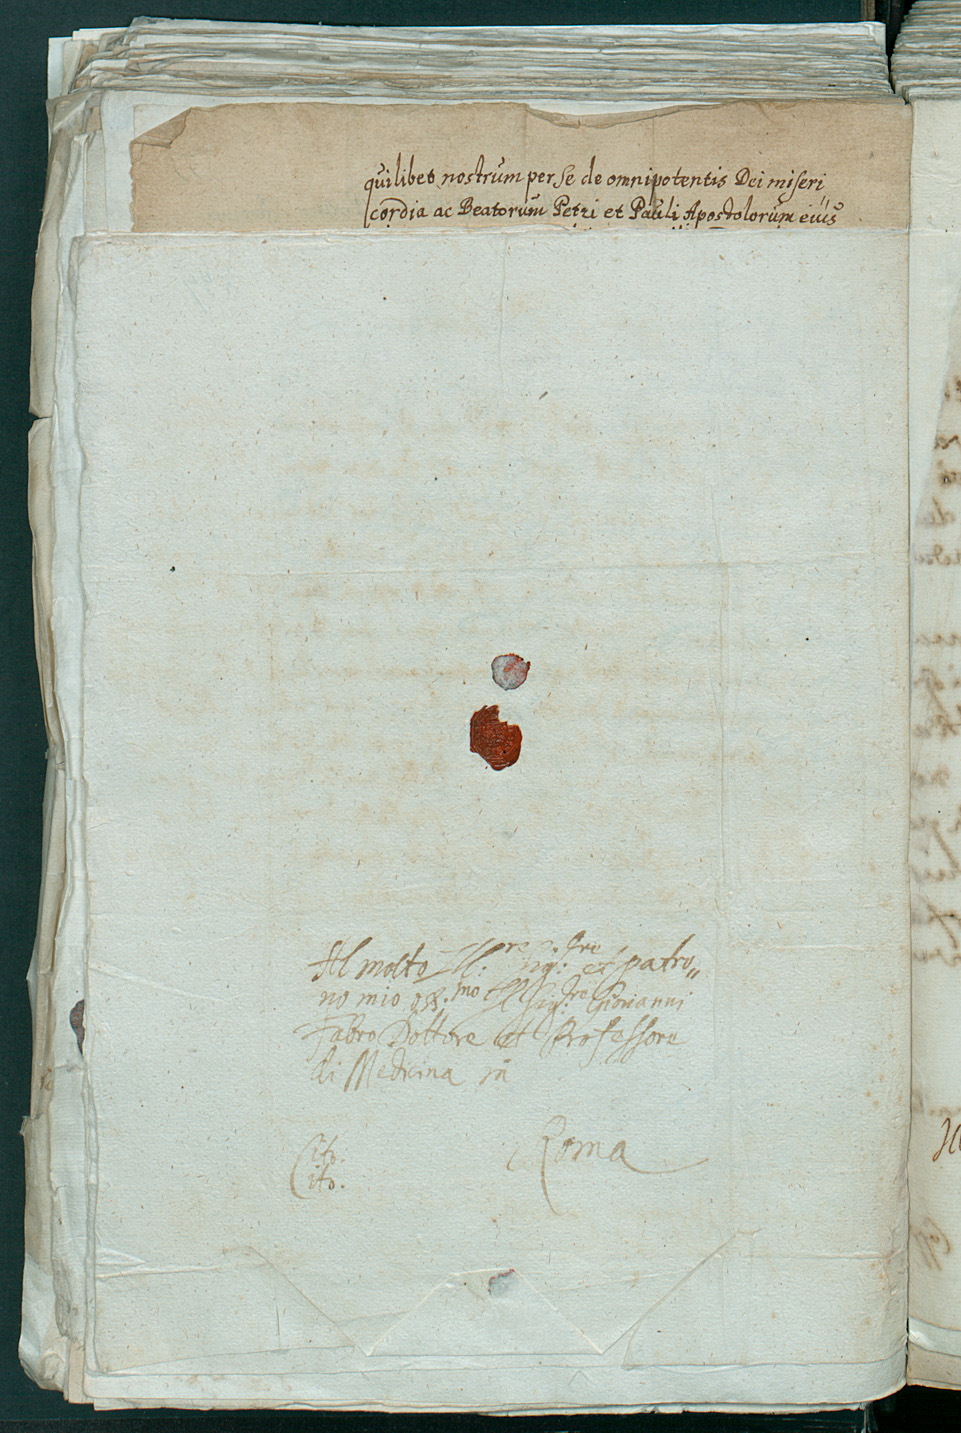 quilibet nostrum per se de omnipotentis Dei miseri
cordia ac Beatorum Petri et Pauli Apostolorum eius
Al molto Ill:re Sig:re et patro„
no mio oss.mo Il Sig:re Giovanni
Fabro Dottore et Professore
di Medicina in
Roma
Cito.
Cito.